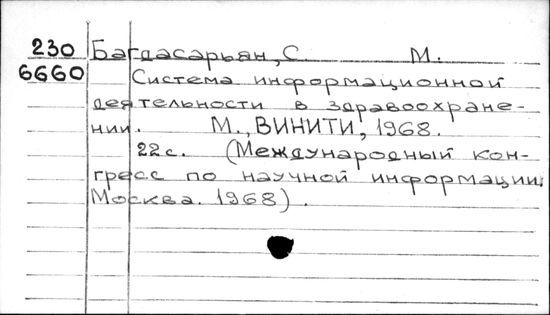 230 Багдасарьян, С. М.
6660 Система информационной
деятельности в здравоохране-
нии. М., ВИНИТИ, 1968.
22с. (Международный кон-
гресс по научной информации.
Москва. 1968).